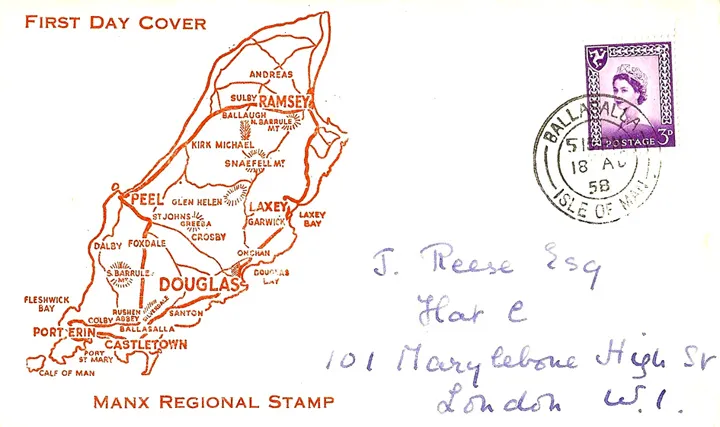 FIRST DAY COVER
ANDREAS
SULBY
RAMSEY
BALLAUGH
N. BARRULE
MT
KIRK MICHAEL
SNAEFELL MT.
PEEL
GLEN HELEN
LAXEY
LAXEY
BAY
ST JOHNS
GREEBA
GARWICK
CROSBY
DALBY
FOXDALE
ONCHAN
S. BARRULE
MT.
DOUGLAS
DOUGLAS
BAY
FLESHWICK
BAY
RUSHEN
ABBEY
SILVERDALE
SANTON
COLBY
BALLASALLA
PORT ERIN
CASTLETOWN
PORT
ST MARY
CALF OF MAN
MANX REGIONAL STAMP
POSTAGE 3D
BALLASALLA
18 AU
58
ISLE OF MAN
J. Reese Esq
Flat C
101 Marylebone High St
London W.1.